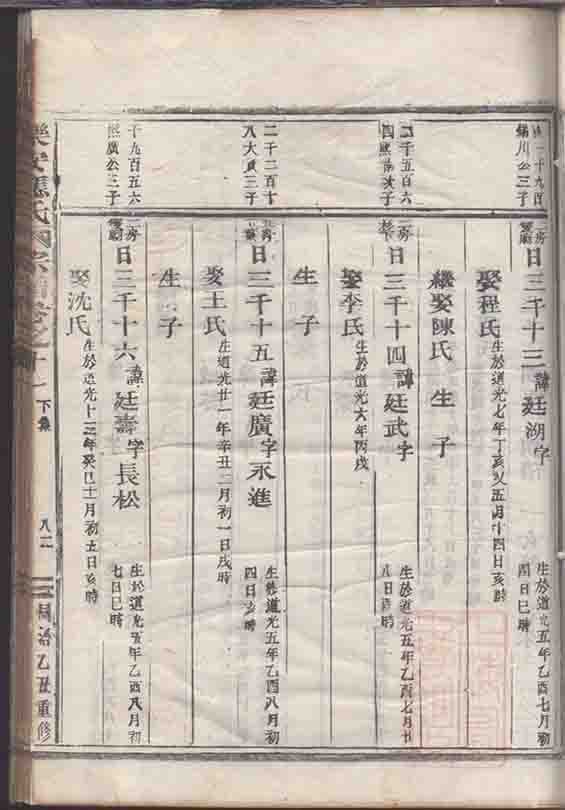 錦川公三子
二房
日三千十三諱廷湖字
生於道光五年乙酉七月初
四日巳時
娶程氏
生於道光七年丁亥又五月十四日亥時
繼娶陳氏 生子
二千五百六
二房
日三千十四諱廷武字
生於道光五年乙酉七月廿
八日酉時
娶李氏
生於道光六年丙戌
生子
二千二百十
八大貢三子
日三千十五諱廷廣字永進
生於道光五年乙酉八月初
四日亥時
娶王氏
生道光廿一年辛丑二月初一日戌時
生子
千九百五六
熙廣公三子
二房
日三千十六諱廷壽字長松
生於道光五年乙酉八月初
七日巳時
娶沈氏
生於道光十三年癸巳十一月初五日亥時
下集
八二
同治乙丑重修